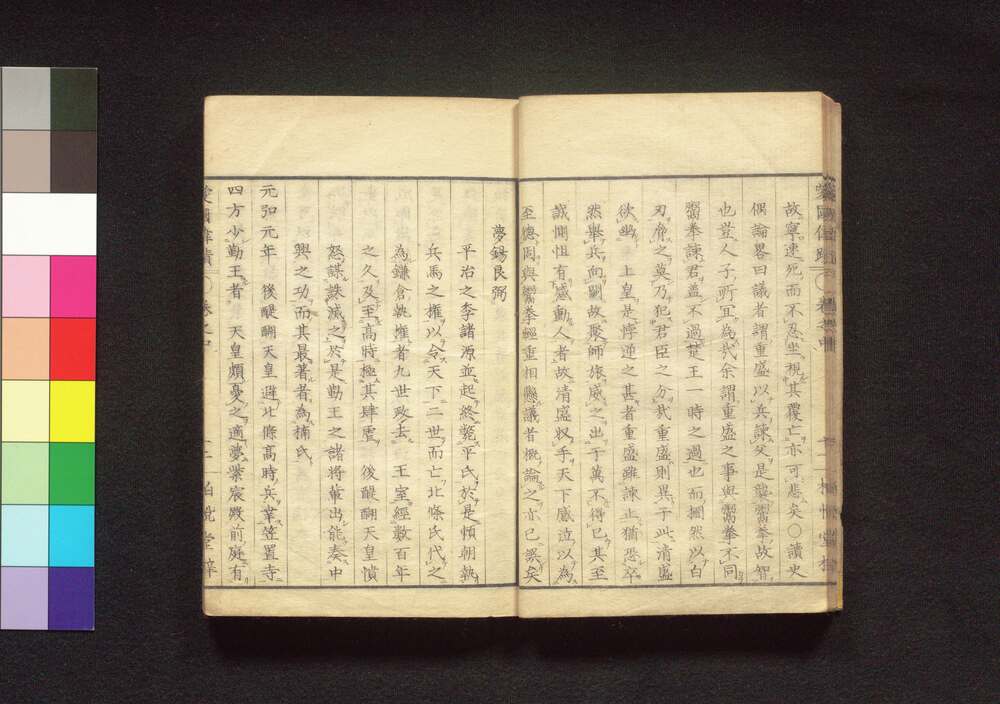 故寧速死而不忍坐視其覆亡亦可悲矣〇讀史
偶論畧曰議者謂重盛以兵諫父是襲鬻拳故智
也豈人子所宜為哉余謂重盛之事與鬻拳不同
鬻拳諫君蓋不過楚王一時之過也而摑然以白
刃脅之莫乃犯君臣之分哉重盛則異于此清盛
欲幽 上皇是悖逆之甚者重盛雖諫止猶恐卒
然舉兵向闕故聚師旅威之出于萬不得已其至
誠惻怛有感動人者故清盛収手天下感泣以為
至德固與鬻拳輕重相懸議者概論之亦已誤矣
夢錫良弼
平治之季諸源並起終斃平氏於是賴朝執
兵馬之權以令天下二世而亡北條氏代之
為鎌倉執權者九世致去 王室經數百年
之久及至高時極其肆虐 後醍醐天皇憤
怒謀誅滅之於是勤王之諸將輩出能奏中
興之功而其最著者為楠氏
元弘元年 後醍醐天皇避北條高時兵幸笠置寺
四方少勤王者 天皇頗憂之適夢紫宸殿前庭有